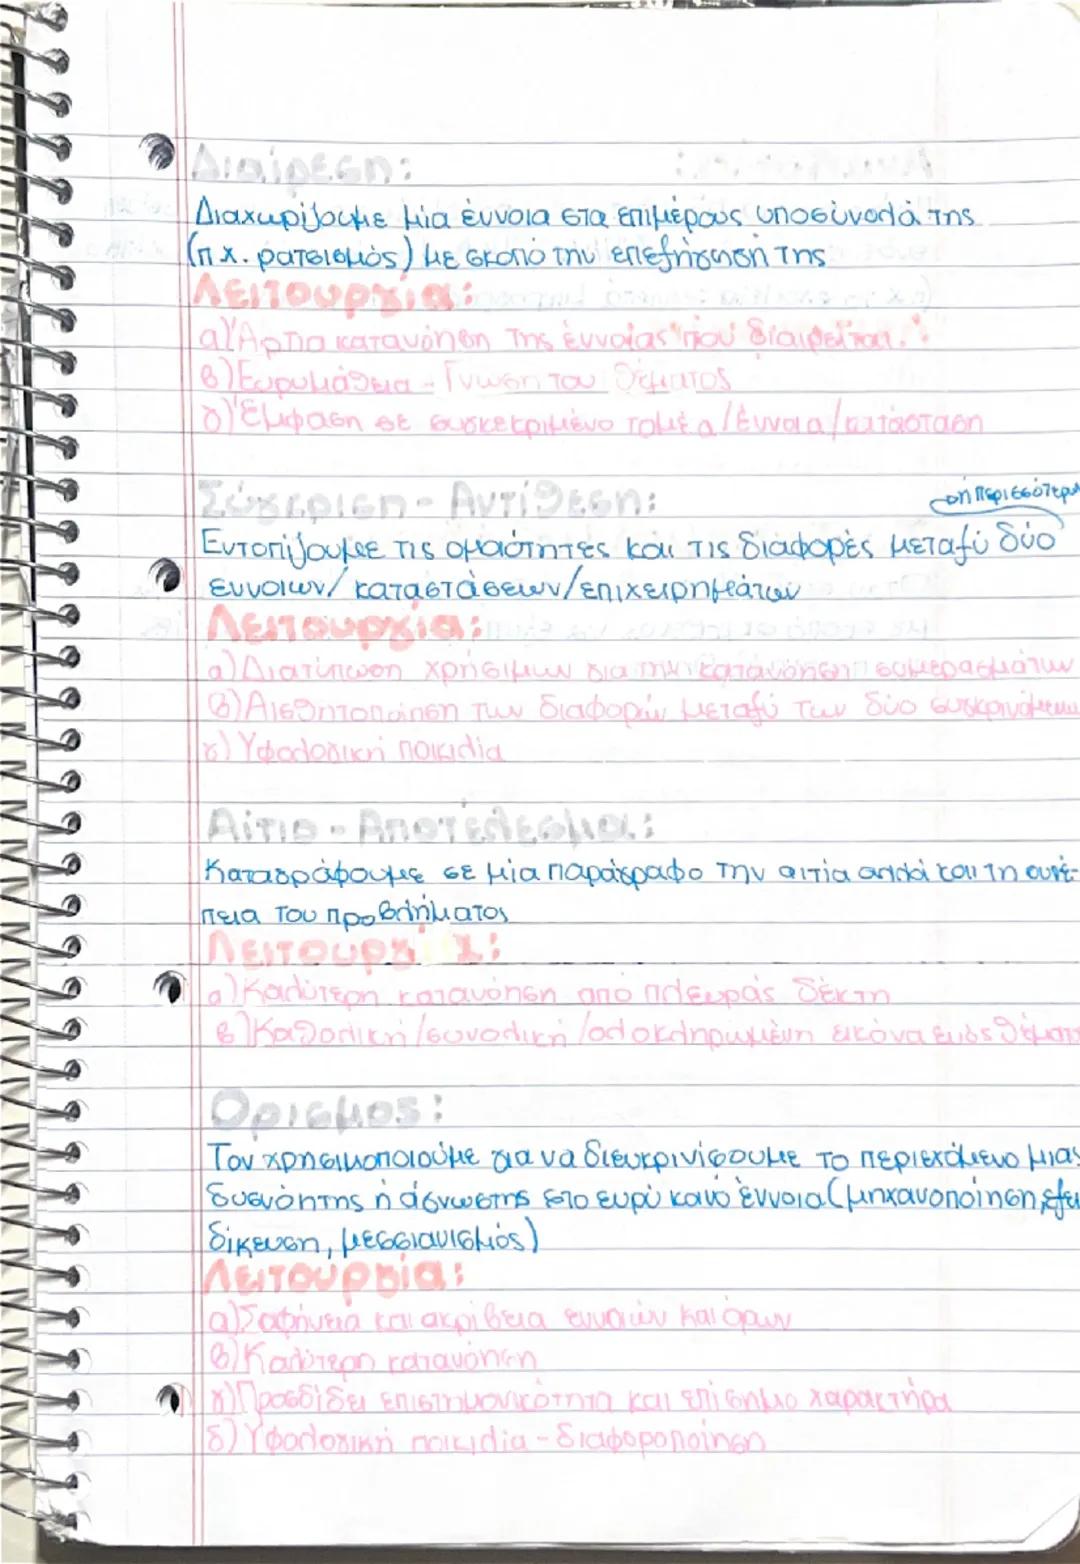 Διαίρεση:
Διαχωρίζουμε μία έννοια στα επιμέρους υποσύνολά της
(π.χ. ρατσισμός) με σκοπό την επεξήγησή της
Λειτουργία:
α) Άρτια κατανόηση της έννοιας που διαιρείται.
β) Ευρυμάθεια - Γνώση του θέματος
γ) Έμφαση σε συγκεκριμένο τομέα/έννοια/κατάσταση
Σύγκριση - Αντίθεση:
ή περισσότερων
Εντοπίζουμε τις ομοιότητες και τις διαφορές μεταξύ δύο
εννοιών/καταστάσεων/επιχειρημάτων
Λειτουργία:
α) Διατύπωση χρήσιμων για την κατανόηση συμπερασμάτων
β) Αισθητοποίηση των διαφορών μεταξύ των δύο συγκρινόμενων
γ) Υφολογική ποικιλία
Αίτιο - Αποτέλεσμα:
Καταγράφουμε σε μία παράγραφο την αιτία αλλά και τη συνέ-
πεια του προβλήματος
Λειτουργία:
α) Καλύτερη κατανόηση από πλευράς δέκτη
β) Καθολική/συνολική/ολοκληρωμένη εικόνα ενός θέματος
Ορισμος:
Τον χρησιμοποιούμε για να διευκρινίσουμε το περιεχόμενο μιας
δυσνόητης ή άγνωστης στο ευρύ κοινό έννοια (μηχανοποίηση, εξει
δίκευση, μεσσιανισμός)
Λειτουργία:
α) Σαφήνεια και ακρίβεια εννοιών και όρων
β) Καλύτερη κατανόηση
γ) Προσδίδει επιστημονικότητα και επίσημο χαρακτήρα
δ) Υφολογική ποικιλία - διαφοροποίηση